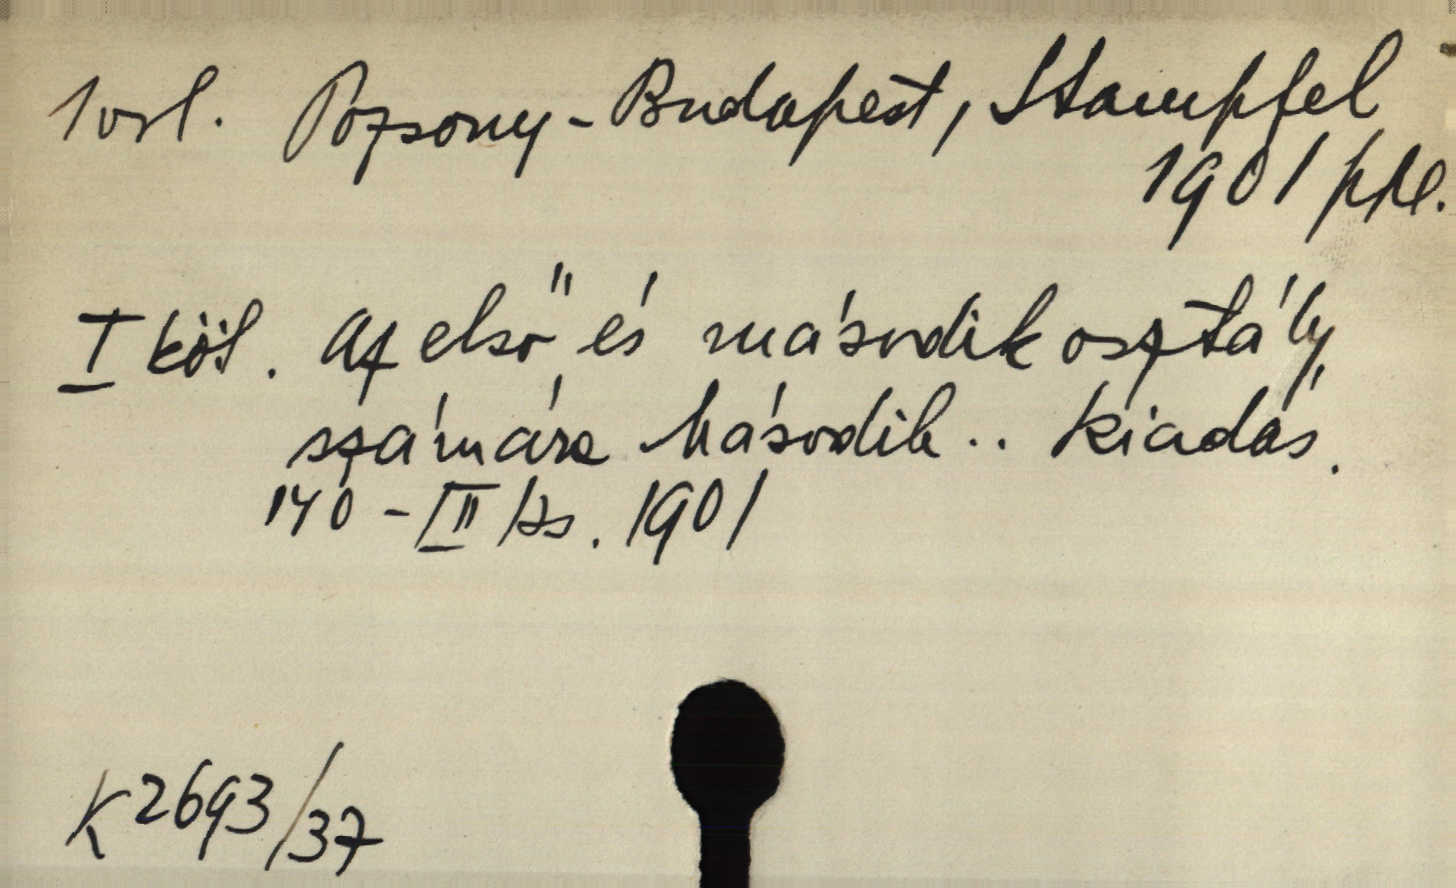 1 osl. Pozsony-Budapest, Stampfel
1901
I köt. Az első és második osztály
számára Második.. kiadás.
140-III 1901
K 2693/37